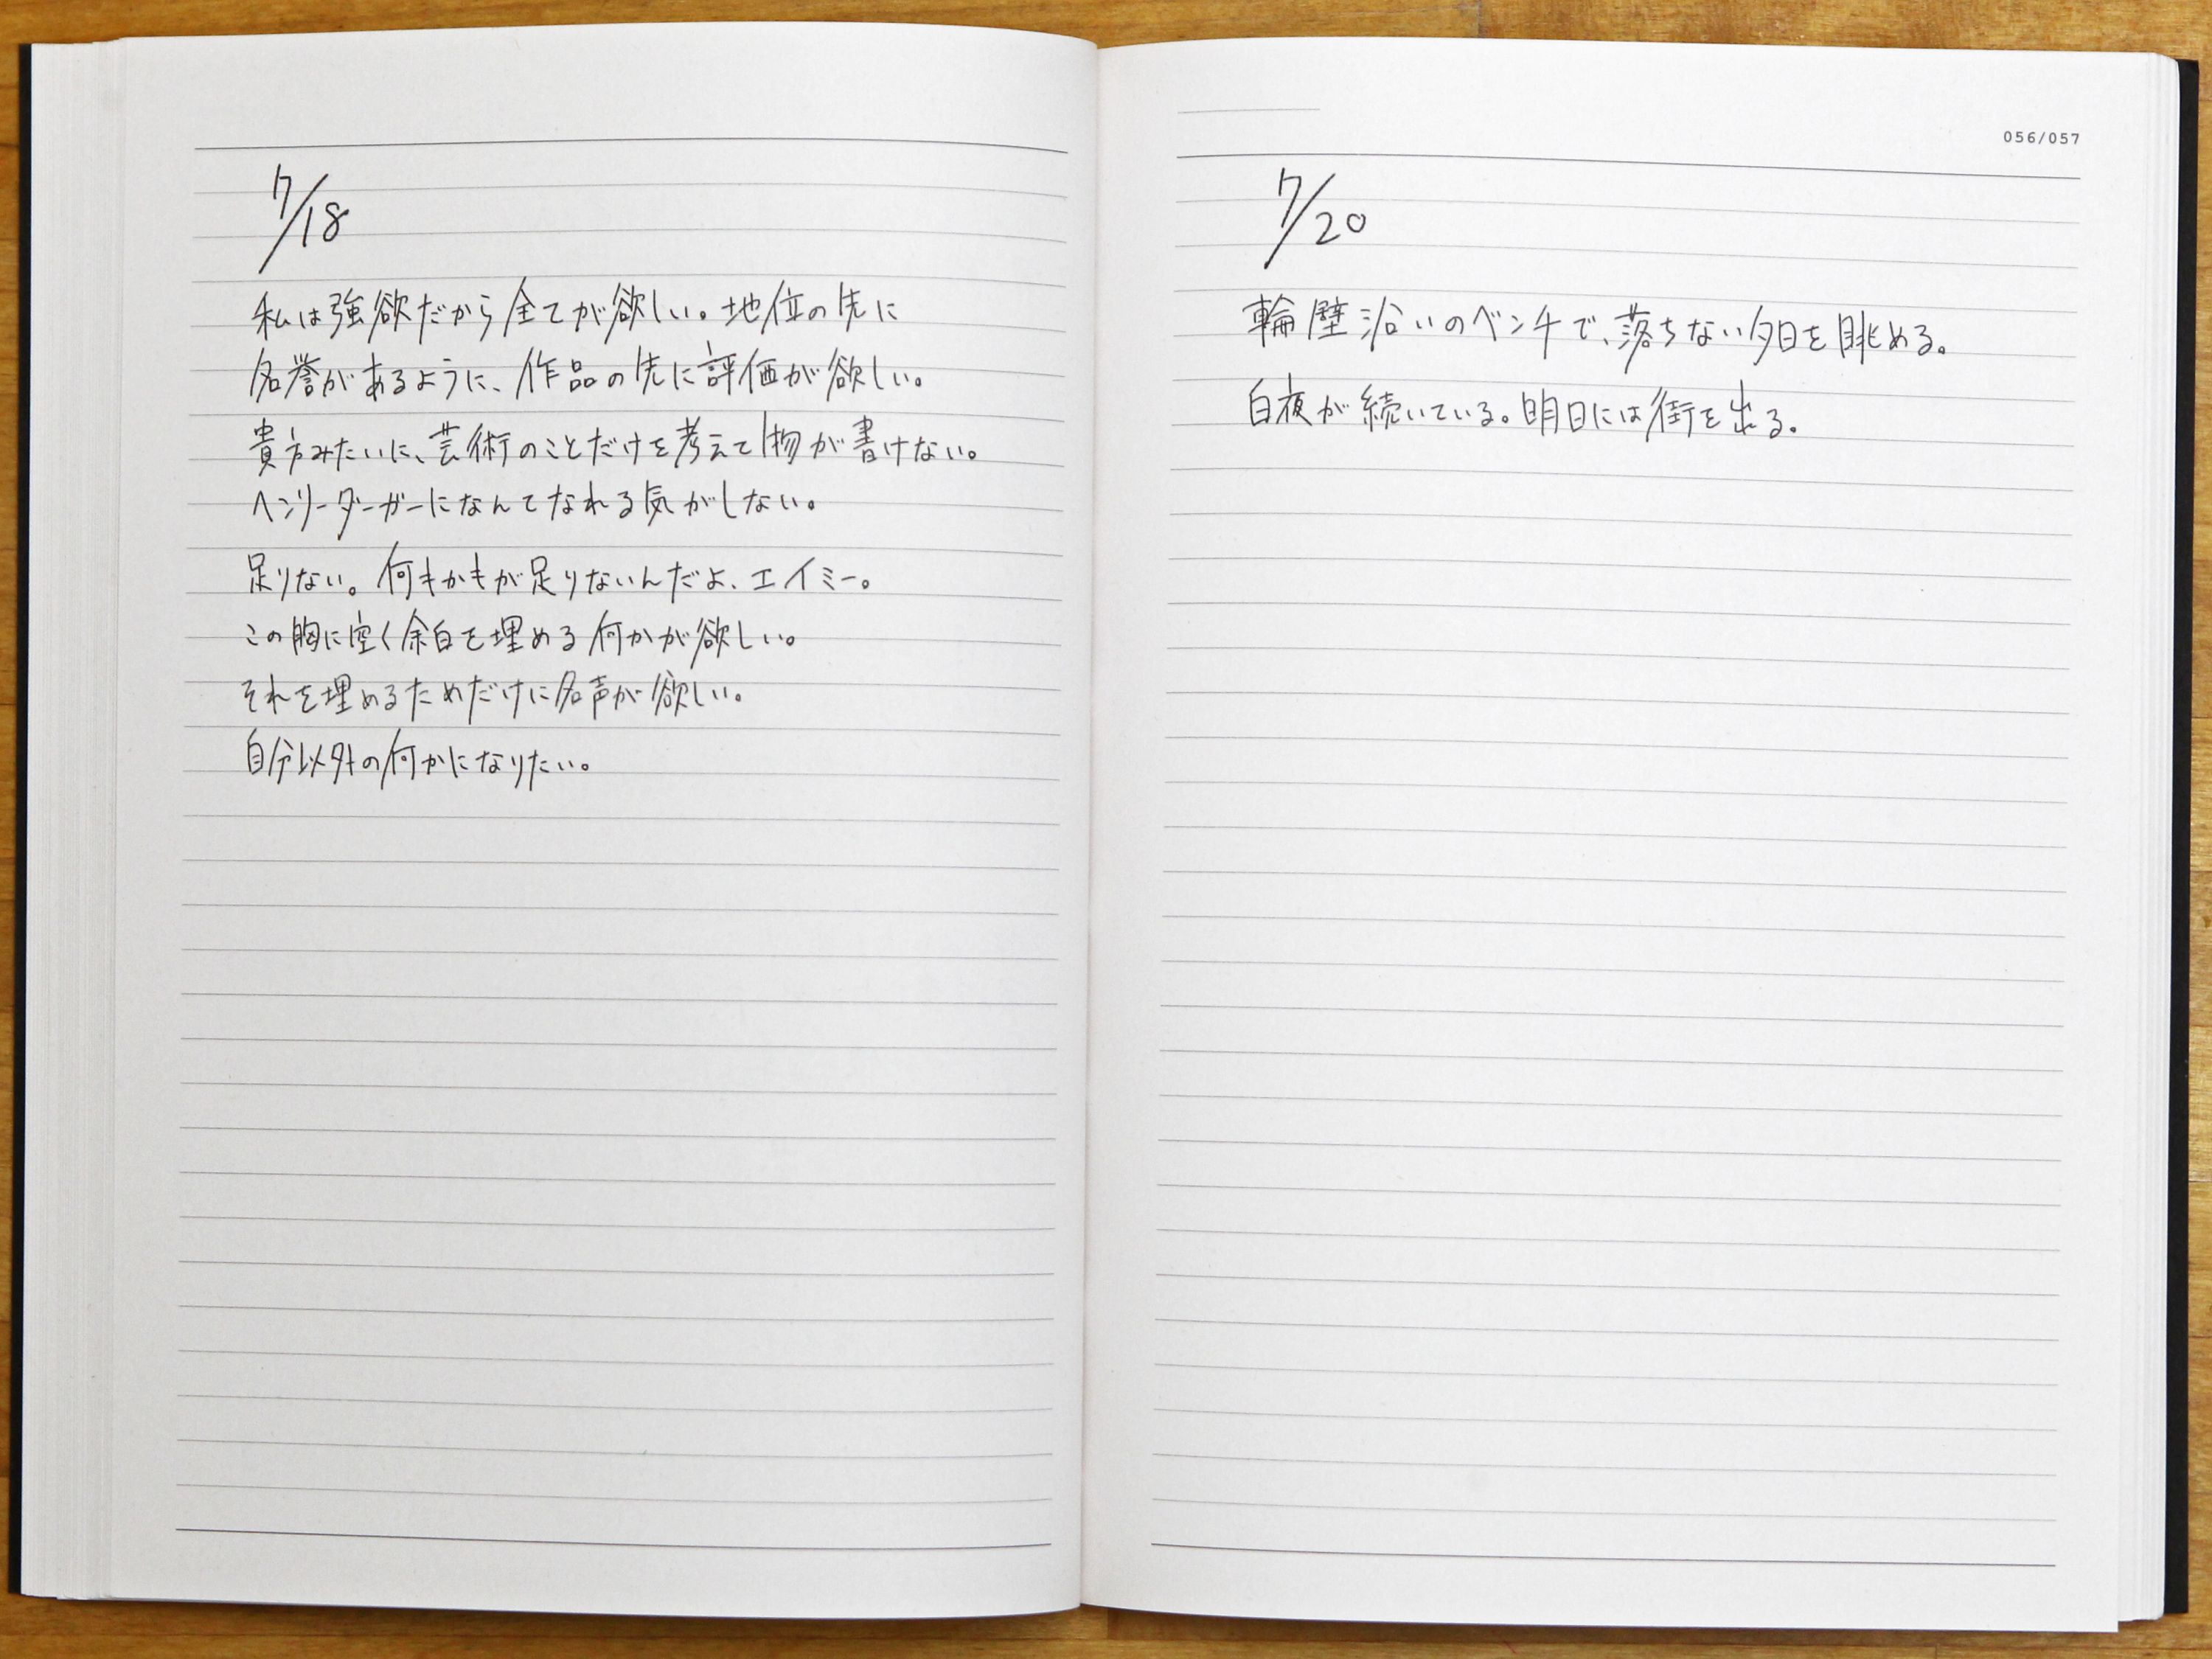 7/18
私は強欲だから全てが欲しい。地位の先に
名誉があるように、作品の先に評価が欲しい。
貴方みたいに、芸術のことだけを考えて物が書けない。
ヘンリーダーガーになんてなれる気がしない。
足りない。何もかもが足りないんだよ、エイミー。
この胸に空く余白を埋める何かが欲しい。
それを埋めるためだけに名声が欲しい。
自分以外の何かになりたい。
056/057
7/20
輪壁沿いのベンチで、落ちない夕日を眺める。
白夜が続いている。明日には街を出る。